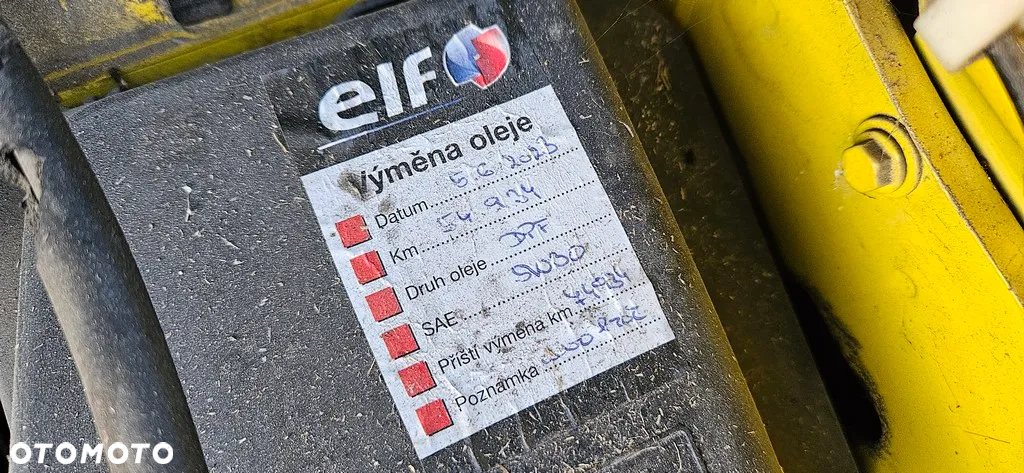 elf
Výměna oleje
Datum 5.6.2023
Km 54 934
Druh oleje DPF
SAE 5W30
Příští výměna km 74934
Poznámka
OTOMOTO